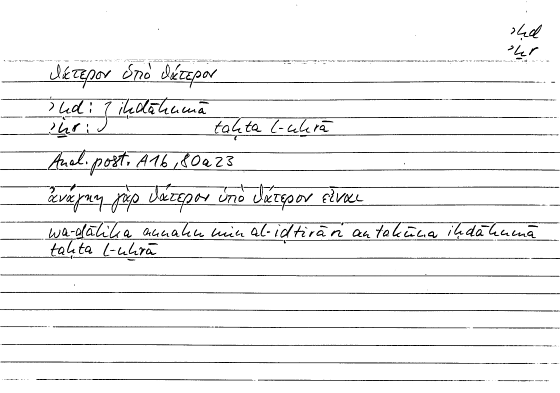 ʾḥd
ʾḫr
θάτερον ὑπὸ θάτερον
ʾḥd : } iḥdāhumā
ʾḫr : } taḥta l-uḫrā
Anal. post. A16, 80a23
ἀνάγκη γὰρ θάτερον ὑπὸ θάτερον εἶναι
wa-ḏālika annahu min al-iḍṭirāri an takūna iḥdāhumā
taḥta l-uḫrā